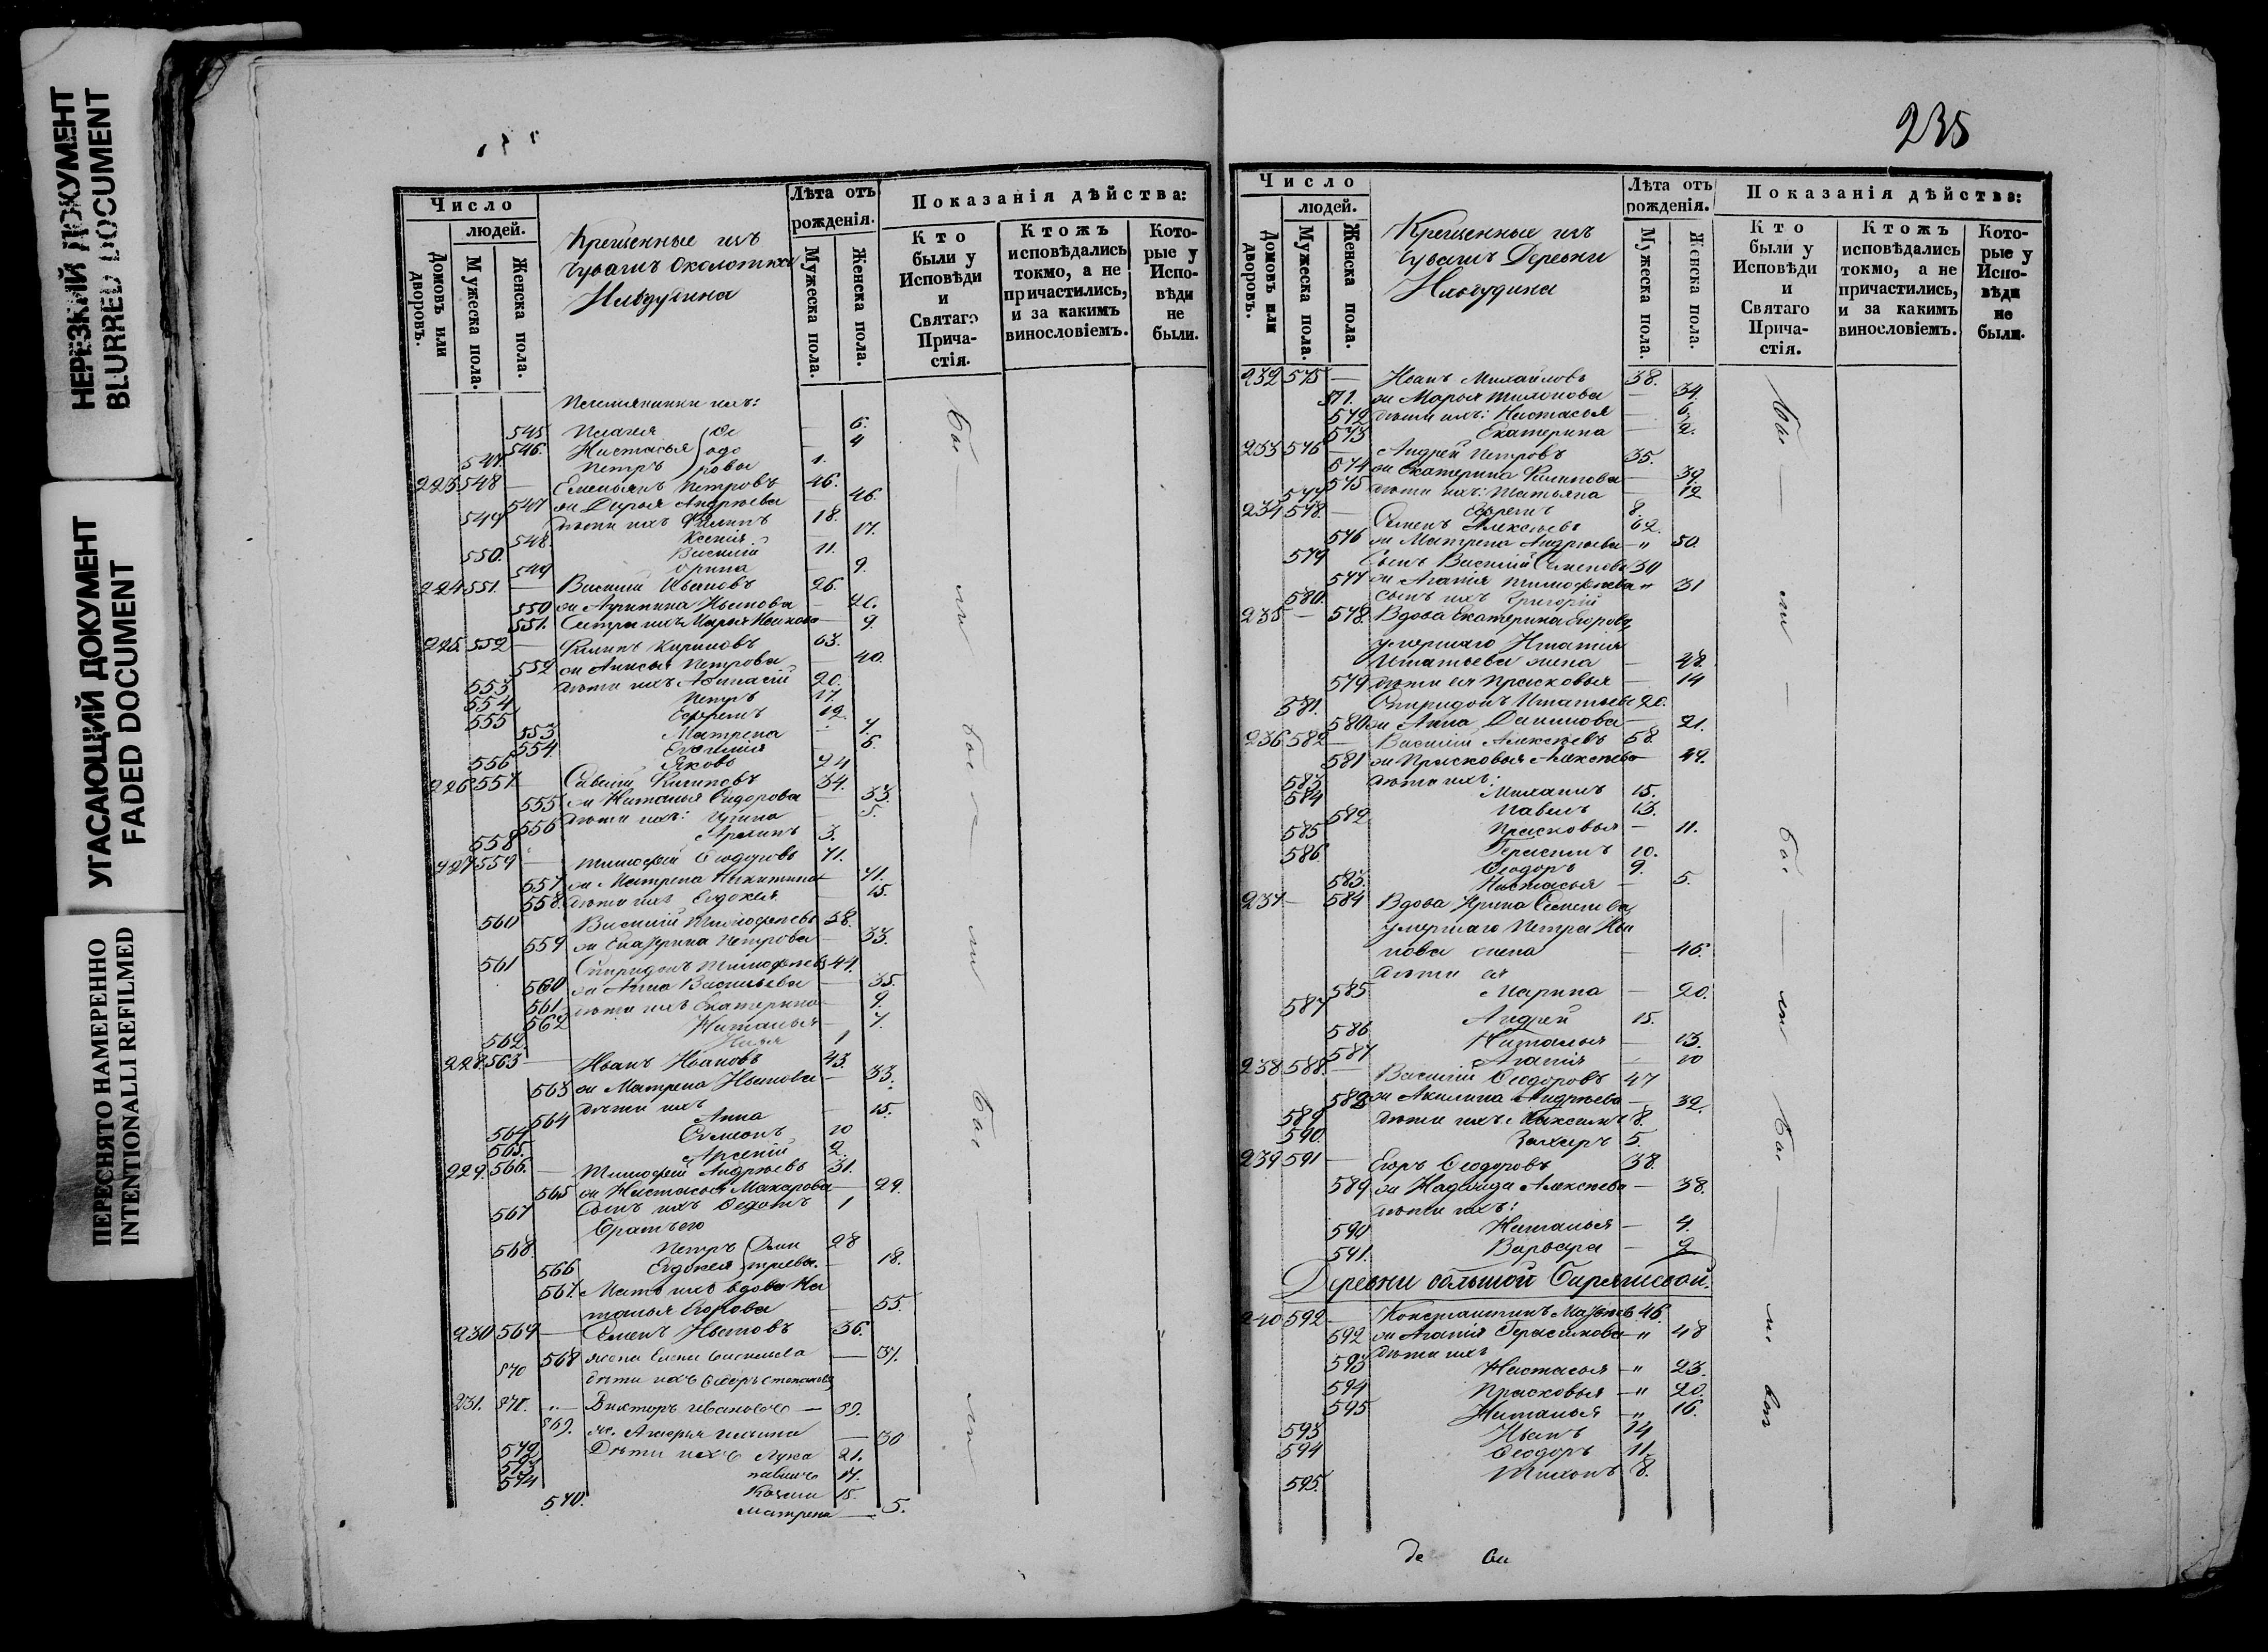 НЕРЕЗКИЙ ДОКУМЕНТ
BLURRED DOCUMENT
УГАСАЮЩИЙ ДОКУМЕНТ
FADED DOCUMENT
ПЕРЕСНЯТО НАМЕРЕННО
INTENTIONALLI REFILMED
Число
людей.
Домовъ или дворовъ.
Мужеска пола.
Женска пола.
Крещенные изъ
Чувашъ Околотка
Лѣта отъ рожденія.
Мужеска пола.
Женска пола.
Показанія дѣйства:
Кто были у Исповѣди и Святаго Прича-стія.
Ктожъ исповѣдались токмо, а не причастились, и за какимъ винословіемъ.
Кото-рые у Испо-вѣди не были.
Племянники ихъ:
545 Пелагея 6.
546. Настасья 4
547. Петръ 1.
223 548 — Емельянъ Петровъ 46.
547 ж Дарья Андреева — 46.
549 дѣти ихъ Филипъ 18.
548. Ксенія — 17.
550. Василій 11.
549 Орина — 9.
224 551. — Василій Ивановъ 26.
550 ж Акулина Иванова —
551. Сестра ихъ Марья Иванова — 9.
225. 552 — Филипъ Кириловъ 63.
552 ж Анисья Петрова — 40.
553 дѣти ихъ Афанасій 20.
554 Петръ 17.
555 Ефремъ 12.
553 Матрена — 7.
554. — 6.
556 Яковъ
226 557. Савелій Филиповъ 34.
555 ж Наталья Сидорова — 33.
556 дѣти ихъ: — 5.
558 3.
227 559 — Тимофей Ѳеодоровъ 71.
557 ж Матрена Никитина — 71.
558. дѣти ихъ Евдокея — 15.
560 Василій Тимофеевъ 38.
559 ж Екатерина Петрова — 33.
561 Спиридонъ Тимофеевъ 44.
560 ж Анна Васильева — 35.
561 дѣти ихъ Екатерина — 9.
562 Наталья — 7.
562. Илья 1
228. 563 — Иванъ Ивановъ 43.
563 ж Матрена Иванова — 33.
дѣти ихъ
564 Анна — 15.
564 Симеонъ 10
565. Арсеній 2.
229. 566. — Тимофей Андреевъ 31.
565 ж Настасья Макарова — 29.
567 Сынъ ихъ Ѳедотъ 1
Братъ его
568. Петръ Дми 28
566 Евдокея триевы. — 18.
567. Мать ихъ вдова На
талья Егорова — 55.
230 569 — Семенъ Ивановъ 36.
568 жена Елена Васильева — 37.
570 дѣти ихъ Ѳедоръ Степановъ
231. 571. — Викторъ Ивановъ — 39.
569. ж. Ильина — 30
572 Дѣти ихъ Лука 21.
573 Павелъ 17.
574 Козма 15.
570. Матрена — 5.
235
Число
людей.
Домовъ или дворовъ.
Мужеска пола.
Женска пола.
Крещенные изъ
Чувашъ Деревни
Лѣта отъ рожденія.
Мужеска пола.
Женска пола.
Показанія дѣйства:
Кто были у Исповѣди и Святаго Прича-стія.
Ктожъ исповѣдались токмо, а не причастились, и за какимъ винословіемъ.
Кото-рые у Испо-вѣди не были.
232 575 — Иванъ Михайловъ 38.
571. ж Марья Тихонова — 34.
572 дѣти ихъ: Настасья — 6.
573 Екатерина — 2.
233 576 — Андрей Петровъ 35.
574 ж Екатерина Филипова — 39.
575 дѣти ихъ: Татьяна — 12
577 Ефремъ 8.
234 578. — Семенъ Алексѣевъ 62.
576 ж Матрена Андреева — " 50.
579 Сынъ Василій Семеновъ 30
577 ж Агапія Тимофеева " 31
580. сынъ ихъ Григорій
235 — 578. Вдова Екатерина Егорова,
умершаго Игнатія
Игнатьева жена — 48.
579 дѣти ея Прасковья — 14
581. Спиридонъ Игнатьевъ 20.
580 ж Анна Данилова — 21.
236 582 — Василій Алексѣевъ 58.
581 ж Прасковья Алексѣева — 49.
дѣти ихъ:
583 Михаилъ 15.
584 Павелъ 13.
582 Прасковья — 11.
585 Герасимъ 10.
586. Ѳеодоръ 9.
583. Настасья — 5.
237 — 584 Вдова Ирина Семенова,
умершаго Петра Ива
нова жена — 46.
дѣти ея
585 Марина — 20.
587 Андрей 15.
586 Наталья — 13.
587 Агапія — 10
238 588. — Василій Ѳеодоровъ 47
588 ж Акилина Андреева — 32.
589 дѣти ихъ: Максимъ 8.
590. Захаръ 5.
239 591 — Егоръ Ѳеодоровъ 38.
589 ж Надежда Алексѣева — 38.
дѣти ихъ:
590 Наталья — 4.
591. Варвара — 2
Деревни большой
240 592 — Константинъ 46.
592 ж Агапія Герасимова — " 48
дѣти ихъ
593 Настасья — " 23.
594 Прасковья — " 20.
595 Наталья — " 16.
593 Иванъ 14
594 Ѳеодоръ 11.
595. Тихонъ 8.